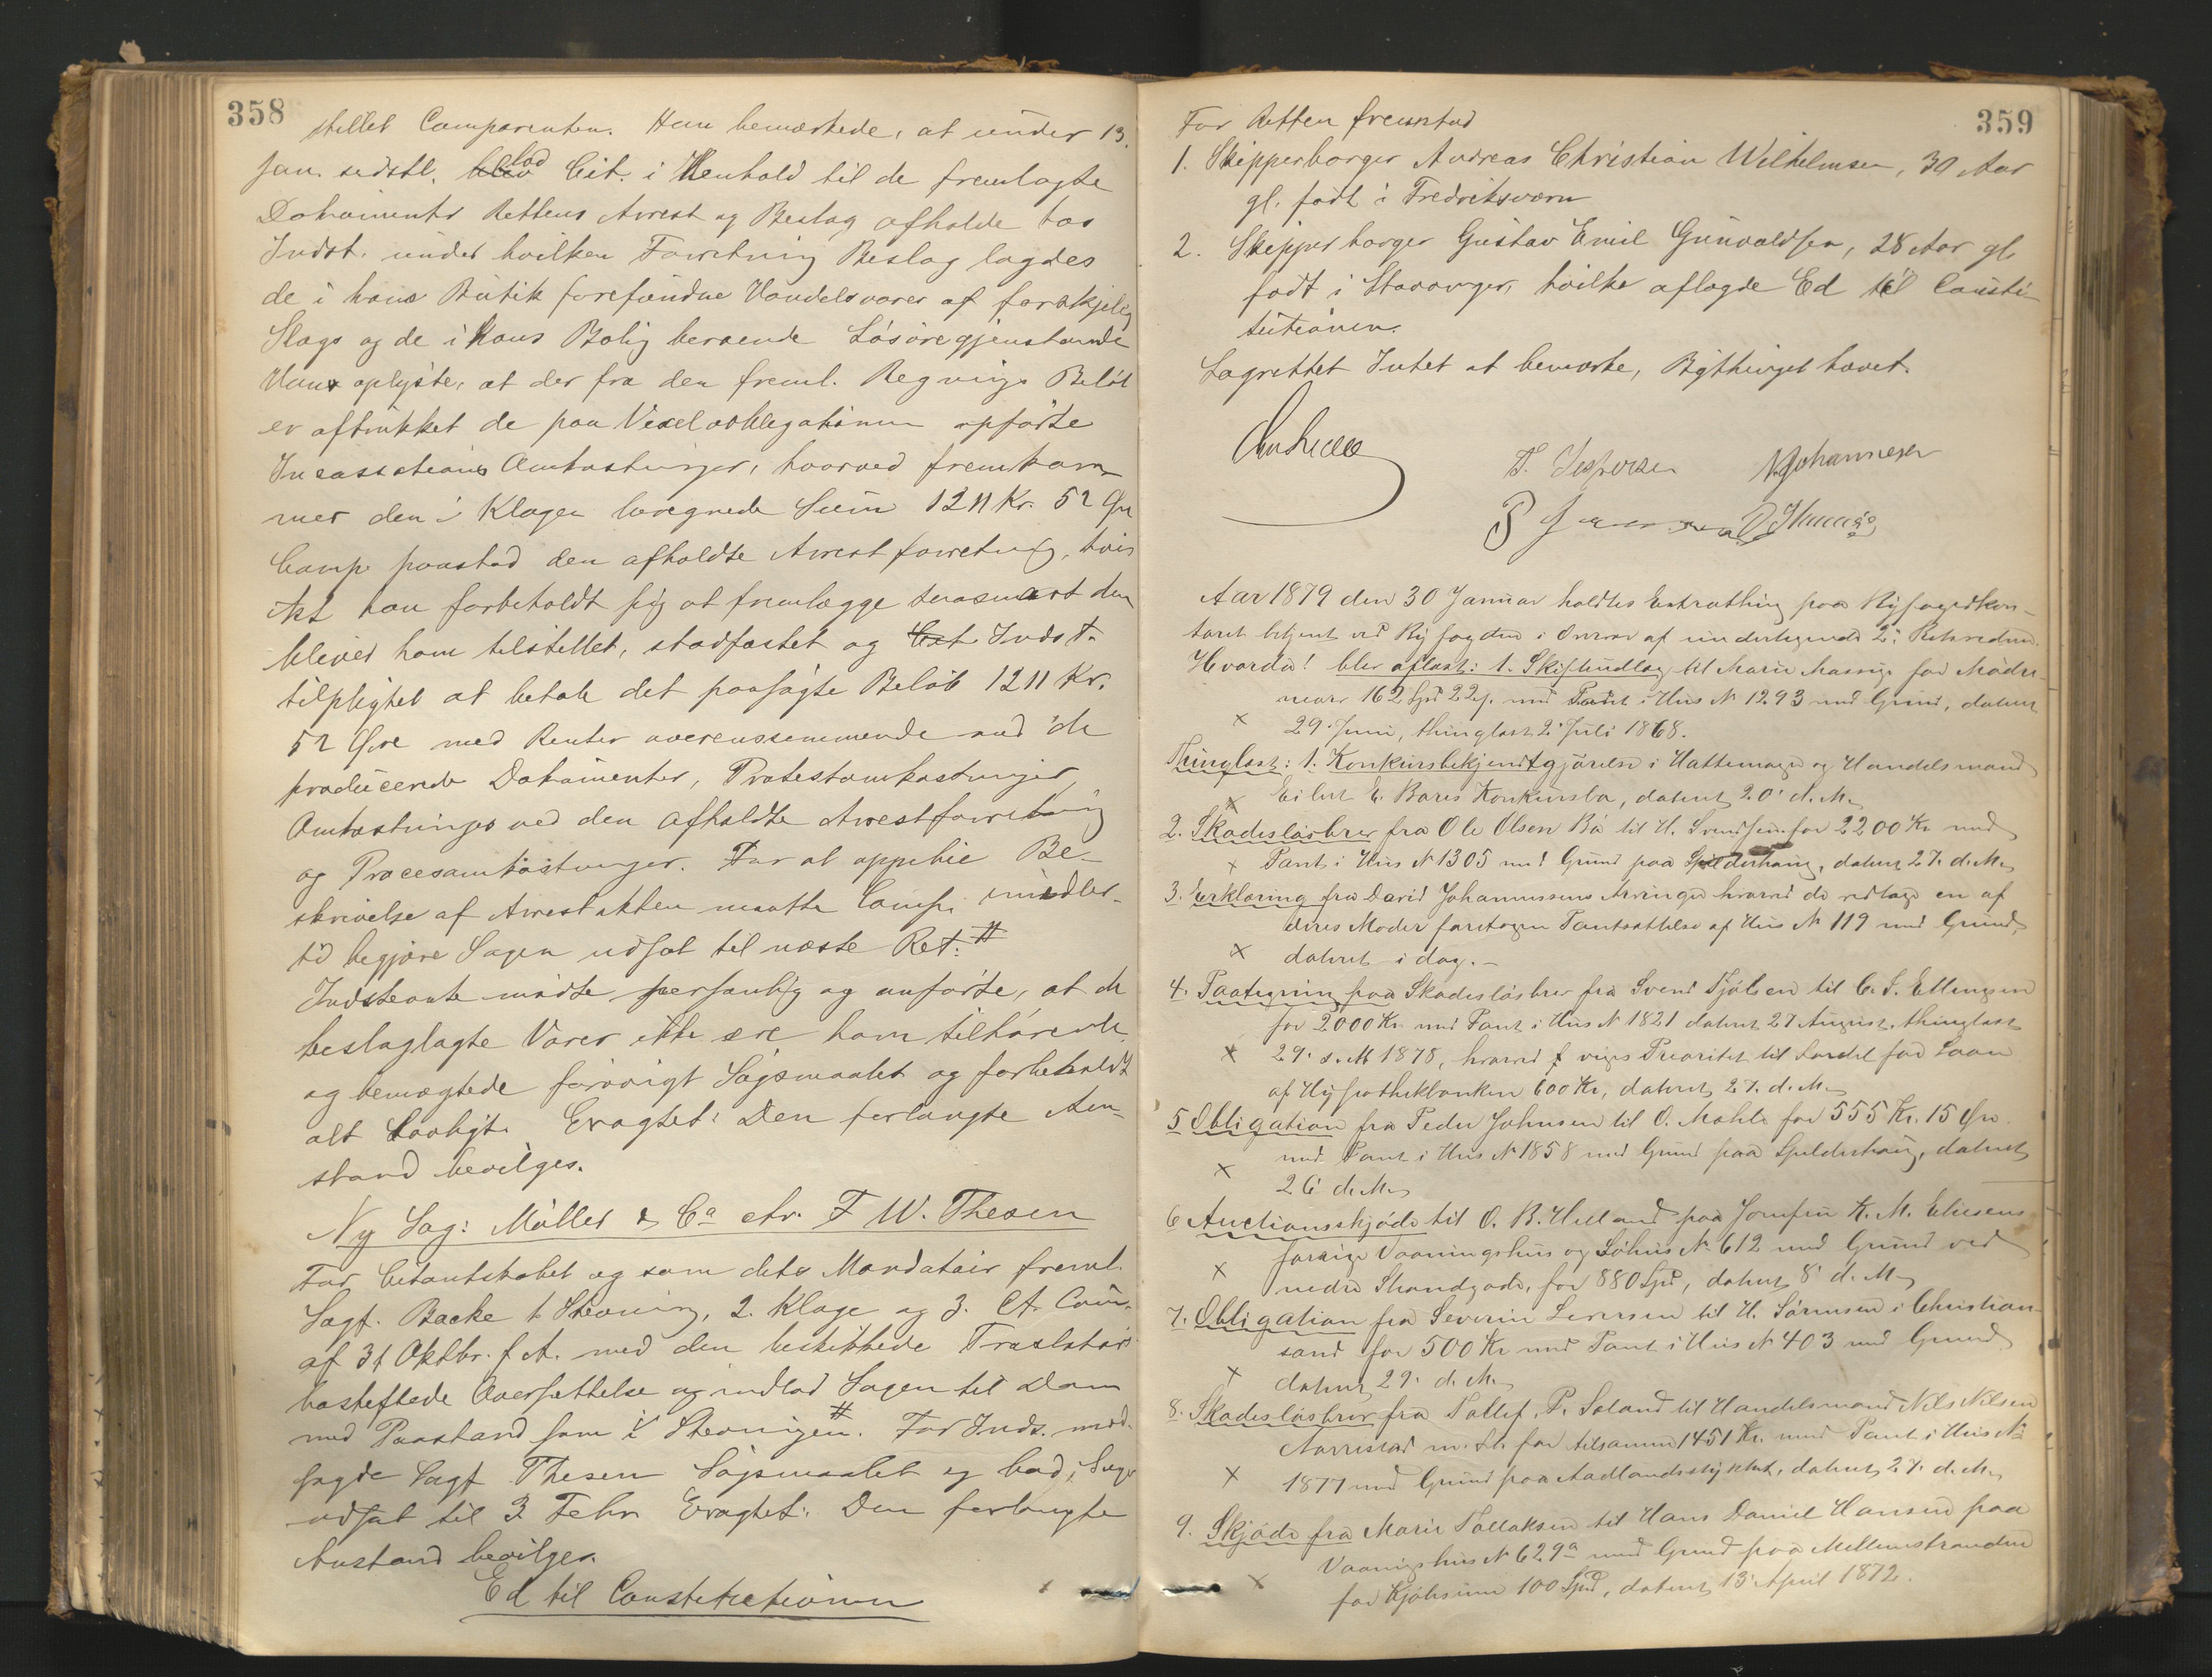 358
stillet Comparenten. Han bemærkede, at under 13.
Jan. sidstl. lod Cit. i Henhold til de fremlagte
Dokumenter Rettens Arrest og Beslag afholde hos
Indst. under hvilken Forretning Beslag lagdes
de i hans Butik forefundne Handelsvarer af forskjelig
Slags og de i hans Bolig beroende Løsøregjenstande
Hans oplyste, at der fra den freml. Regnings Beløb
er aftrukket de paa Vexelobligationen opførte
Incassations Omkostninger, hvorved fremkom-
mer den i Klagen beregnede Sum 1211 Kr. 52 Øre
Comp. paastod den afholdte Arrestforretning, hvis
Akt han forbeholdt sig at fremlægge saasnart den
blever ham tilstillet, stadfæstet og Indst.
tilpligtet at betale det paasagte Beløb 1211 Kr.
52 Øre med Renter overensstemmende med de
producerede Dokumenter, Protestomkostninger,
Omkostninger ved den afholdte Arrestforretning
og Procesomkostninger. For at oppebie Be-
skrivelse af Arrestakten maatte Comp. imidler-
tid begjære Sagen udsat til næste Ret. #
Indstevnte mødte personlig og anførte, at de
beslaglagte Varer ikke ere ham tilhørende
og benægtede forøvrigt Søgsmaalet og forbeholdt
alt Lovligt. Eragtet: Den forlangte An-
stand bevilges.
Ny Sag: Møller & Co ctr. F W. Thesen
For Citantskabet og som dets Mandatair freml.
Sagf. Backe 1 Stevning, 2. Klage og 3. Ct. Cour.
af 31 Oktbr. f. A. med den beskikkede Translatørs
hosheftede Oversættelse og indlod Sagen til Dom
med Paastand som i Stevningen. # For Inds. mod-
sagde Sagf Thesen Søgsmaalet og bad Sagen
udsat til 3 Febr. Eragtet: Den forlangte
Anstand bevilges.
Ed til Constitutionen
359
For Retten fremstod
1. Skipperborger Andreas Christian Wilhelmsen, 30 Aar
gl. født i Fredriksværn
2. Skipperborger Gustav Emil Gunvaldsen, 28 Aar gl
født i Stavanger, hvilke aflagde Ed til Consti-
tutionen.
Lagrettet Intet at bemærke, Bythinget hævet.
T. Jespersen Johannesen
Aar 1879 den 30 Januar holdtes Extrathing paa Byfogedkon-
toret betjent ved Byfogden i Overvær af undertegnede 2de Retsvidner.
Hvorda! blev aflæst: 1. Skifteudlæg til Marie Massige for Mødre-
nearv 162 Spd 22 s. med Pant i Hus No 1293 med Grund, dateret
x 29 Juni, thinglæst 2 Juli 1868.
Thinglæst: 1. Konkursbekjendtgjørelse i Hattemager og Handelsmand
x Eilert E. Bores Konkursbo, dateret 20 d. M.
2. Skadesløsbrev fra Ole Olsen Bø til H. Svendsen for 2200 Kr. med
x Pant i Hus No 1305 med Grund paa Spilderhaug, dateret 27. d. M.
3. Erklæring fra David Johannessens Arvinger hvorved de vedtage en af
deres Moder foretagen Pantsættelse af Hus No 119 med Grund,
x dateret i dag. –
4. Paategning paa Skadesløsbrev fra Svend Tjølsen til C. S. Ellingsen
for 2000 Kr. med Pant i Hus No 1821 dateret 27 August, thinglæst
x 29. s. M 1878, hvorved viges Prioritet til Fordel for Laan
af Hypothekbanken 600 Kr, dateret 27. d. M.
5 Obligation fra Peder Johnsen til O. Mohle for 555 Kr. 15 Øre
med Pant i Hus No 1858 med Grund paa Spilderhaug, dateret
x 26 d. M.
6 Auctionsskjøde til O. B. Helland paa Jomfru K. M. Eliesens
forrige Vaaningshus og Søhus No 612 med Grund ved
x nedre Strandgade, for 880 Spd, dateret 8 d. M.
7. Obligation fra Severin Seversen til H. Sørensen i Christian-
sand for 500 Kr med Pant i Hus No 403 med Grund
x dateret 29. d. M.
8. Skadesløsbrev fra Tollef. P. Soland til Handelsmand Nils Nilsen
Norrestad m. fl. for tilsammen 1451 Kr. med Pant i Hus No
x 1877 med Grund paa Aadlandsstykket, dateret 27. d. M.
9. Skjøde fra Marie Tollaksen til Hans Daniel Hansen paa
Vaaningshus No 629a med Grund paa Mellemstranden
x for Kjøbesum 100 Spd, dateret 13 April 1872.